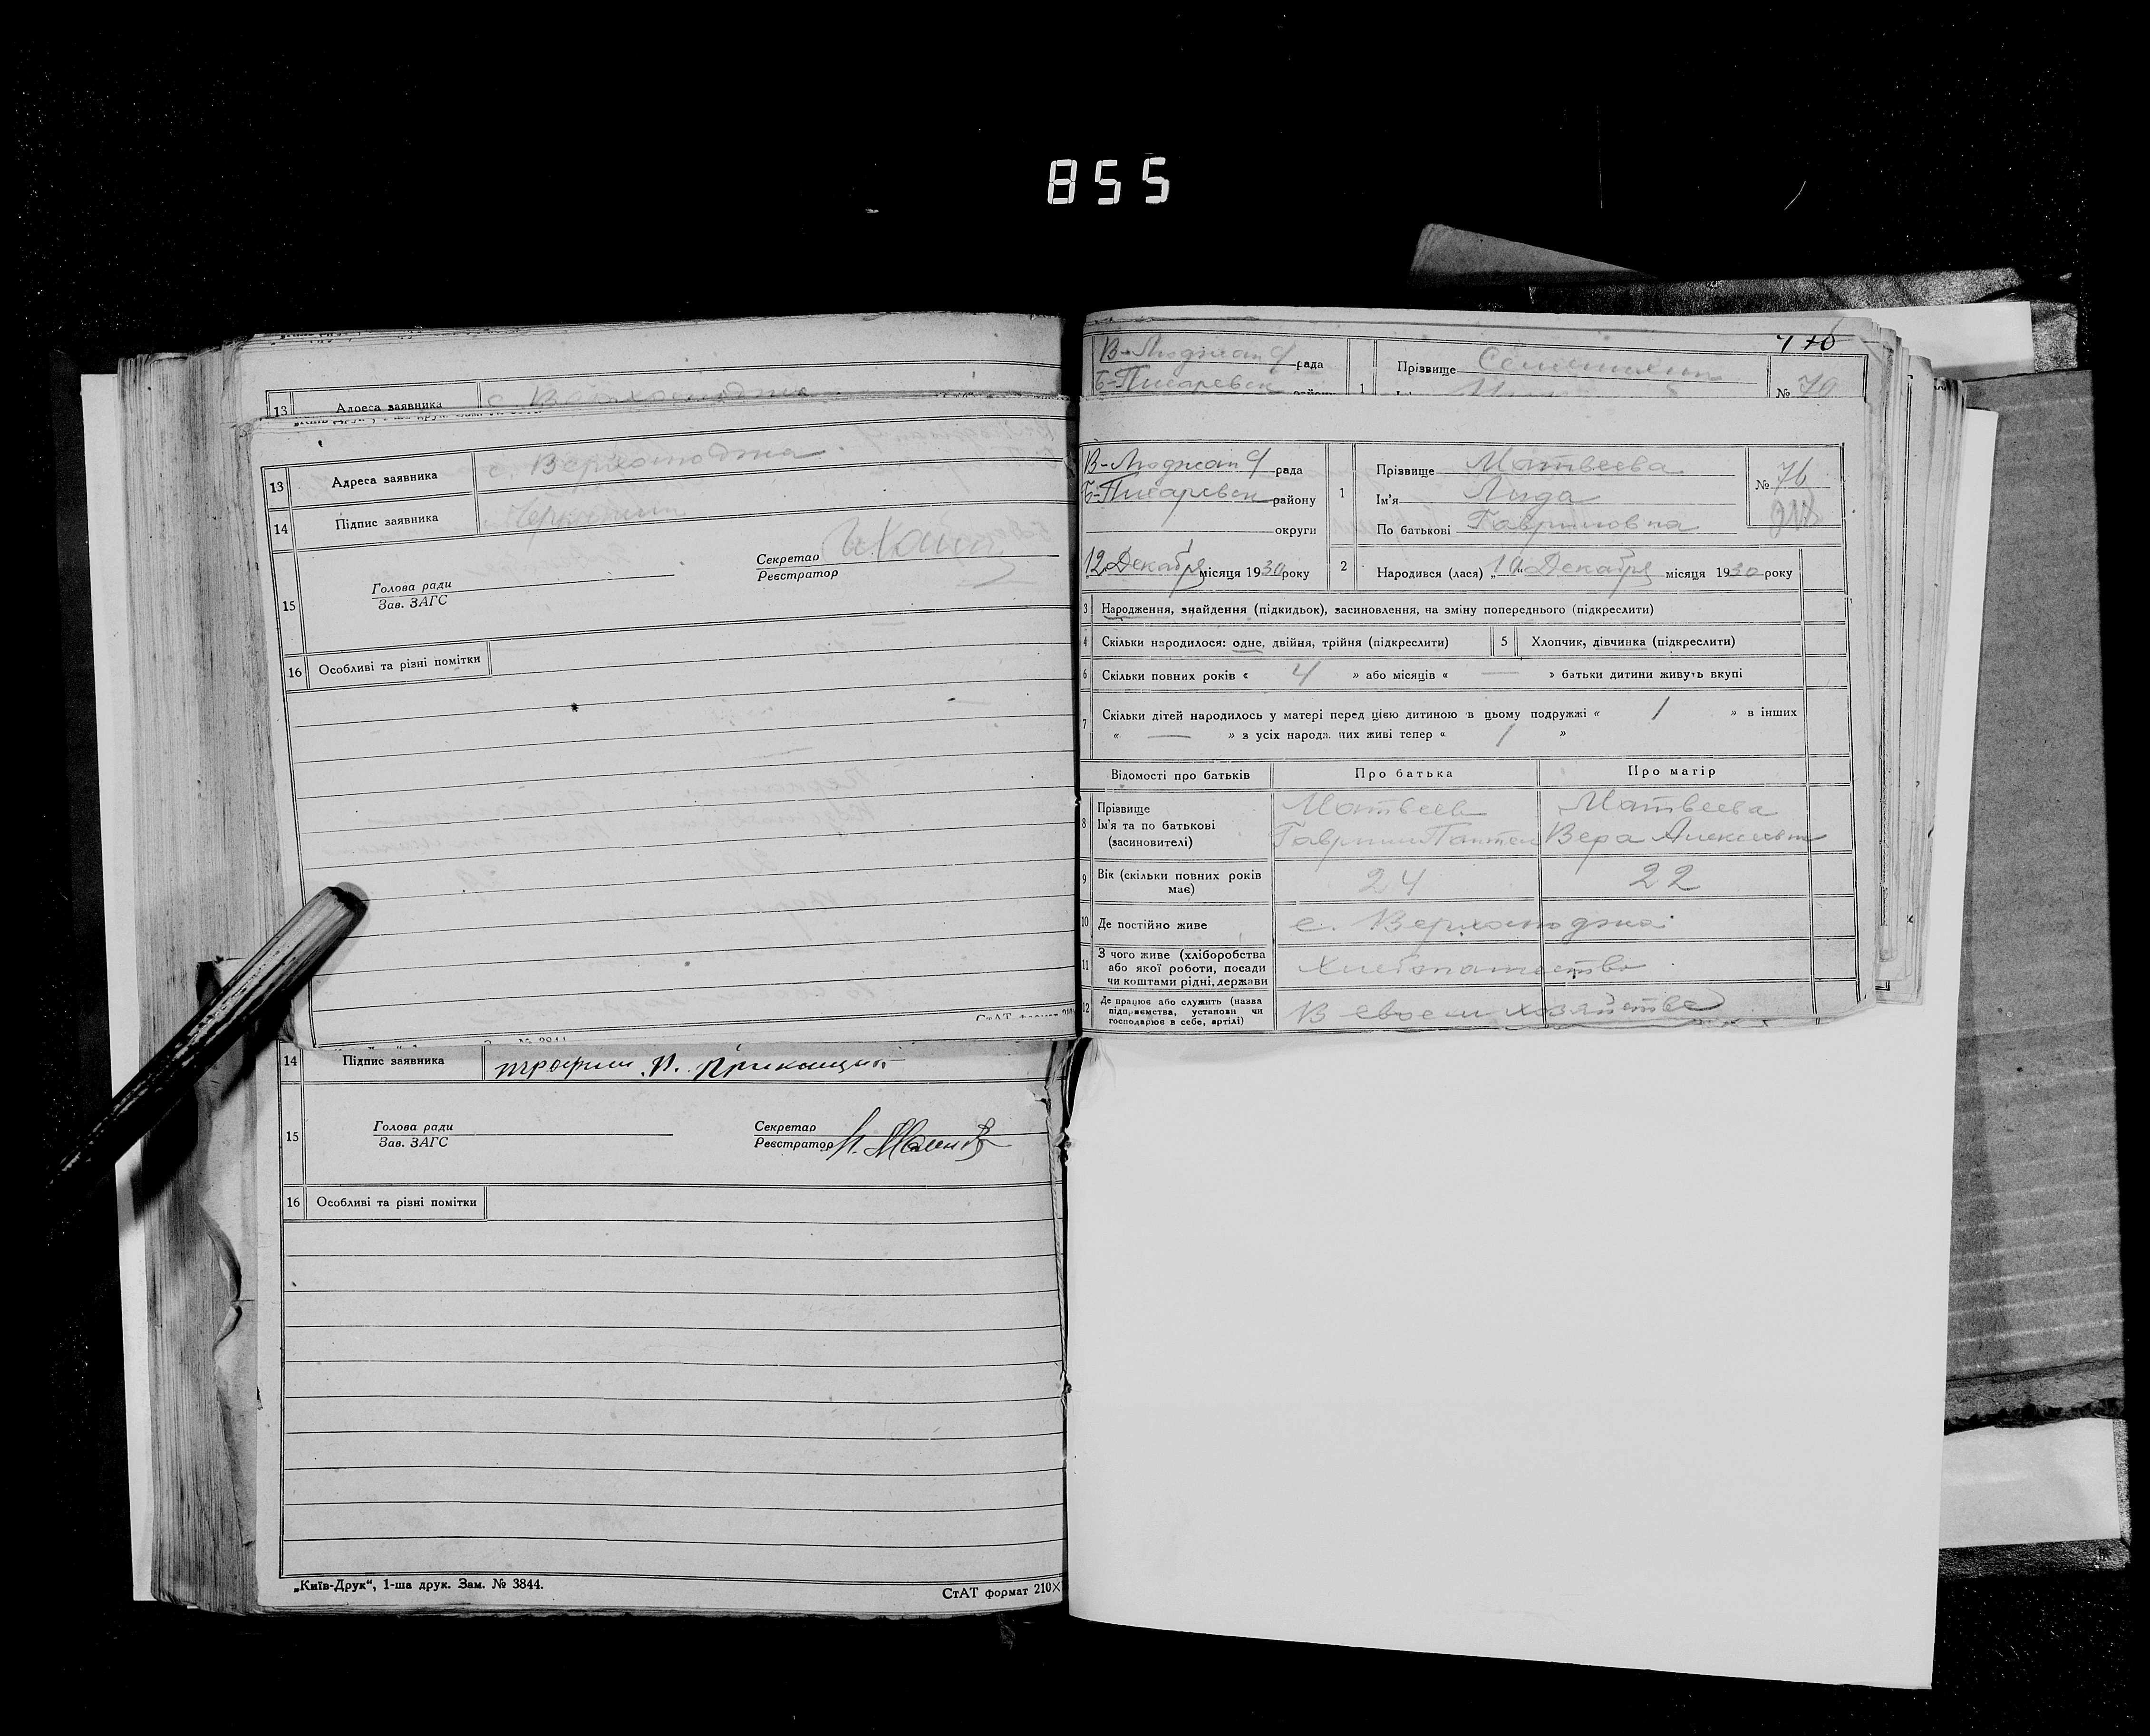 855
13 Адреса заявника
13 Адреса заявника с. Верхолюджа
14 Підпис заявника
15 Голова ради
Зав. ЗАГС
Секретар
Реєстратор
16 Особливі та різні помітки
14 Підпис заявника
15 Голова ради
Зав. ЗАГС
Секретар
Реєстратор
16 Особливі та різні помітки
„Київ-Друк“, 1-ша друк. Зам. № 3844.
СтАТ формат 210×
В-Люджан рада
Б-Писаревск
1 Прізвище
№ 70
В-Люджан рада
Б-Писаревск району
округи
12 Декабря місяця 1930 року
1 Прізвище Матвеева
Ім'я Лида
По батькові Гавриловна
№ 76
2 Народився (лася) „10“ Декабря місяця 1930 року
3 Народження, знайдення (підкидьок), засиновлення, на зміну попереднього (підкреслити)
4 Скільки народилося: одне, двійня, трійня (підкреслити)
5 Хлопчик, дівчинка (підкреслити)
6 Скільки повних років « 4 » або місяців « — » батьки дитини живуть вкупі
7 Скільки дітей народилось у матері перед цією дитиною в цьому подружжі « 1 » в інших
« — » з усіх народж них живі тепер « 1 »
Відомості про батьків Про батька Про матір
8 Прізвище
Ім'я та по батькові
(засиновителі)
Матвеев
Гаврилл Пантел
Матвеева
Вера Алексеевна
9 Вік (скільки повних років має) 24 22
10 Де постійно живе с. Верхолюджа
11 З чого живе (хліборобства
або якої роботи, посади
чи коштами рідні, держави
Хлебопашество
12 Де працює або служить (назва
підприємства, установи чи
господарює в себе, артілі)
В своем хозяйстве